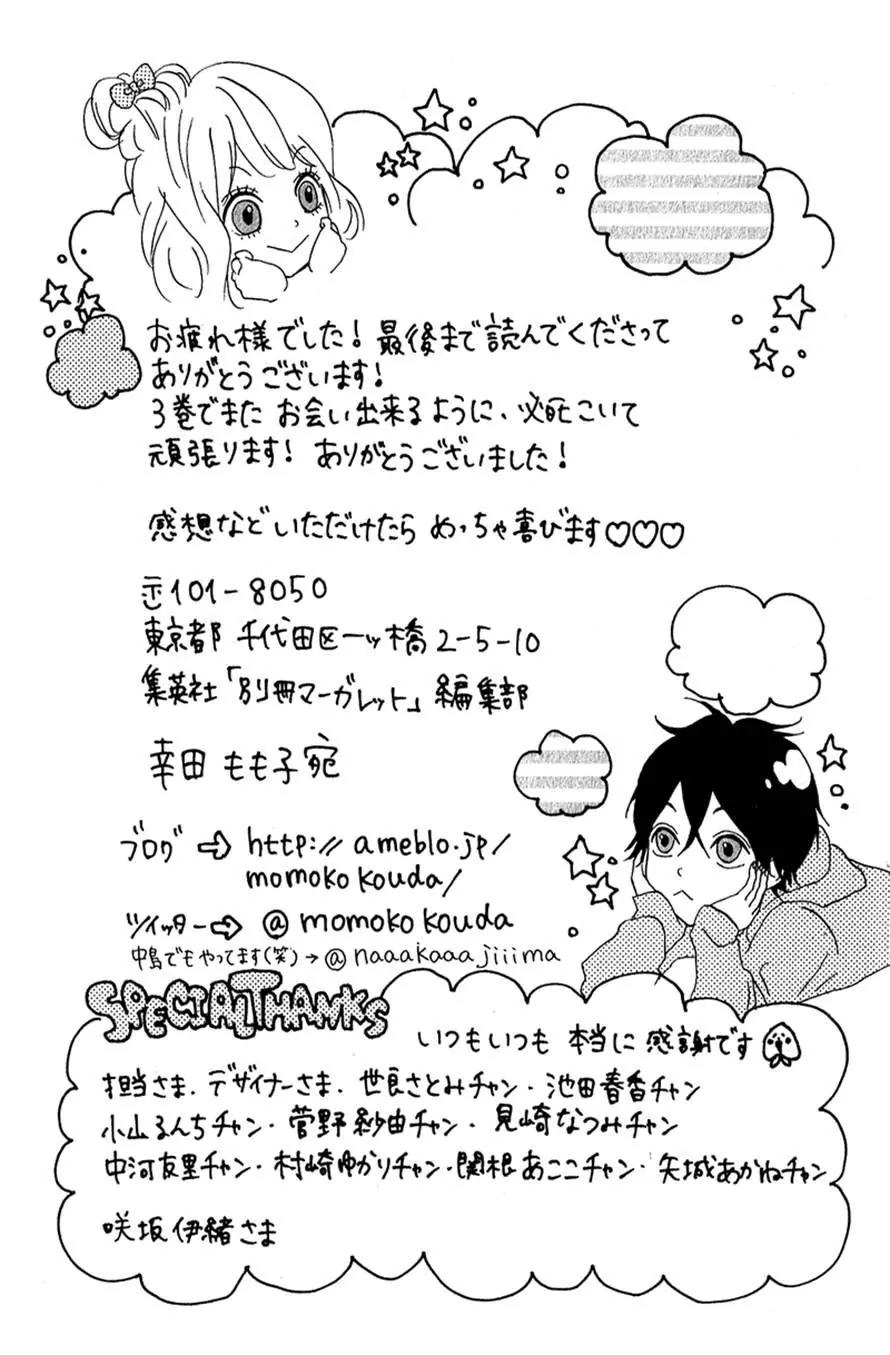 お疲れ様でした! 最後まで読んでくださって
ありがとうございます!
3巻でまた お会い出来るように、必死こいて
頑張ります! ありがとうございました!
感想などいただけたら めっちゃ喜びます♡♡♡
〒101-8050
東京都 千代田区一ッ橋2-5-10
集英社「別冊マーガレット」編集部
幸田 もも子宛
ブログ ➪ http://ameblo.jp/
momokokouda/
ツイッター➪ @momokokouda
中島でもやってます(笑)→@naaakaaajiiima
SPECIAL THANKS
いつもいつも 本当に 感謝です
担当さま、デザイナーさま、世良さとみチャン・池田春香チャン
小山るんちチャン・菅野紗由チャン・見崎なつみチャン
中河友里チャン・村崎ゆかりチャン・関根あここチャン・矢城あかねチャン
咲坂伊緒さま